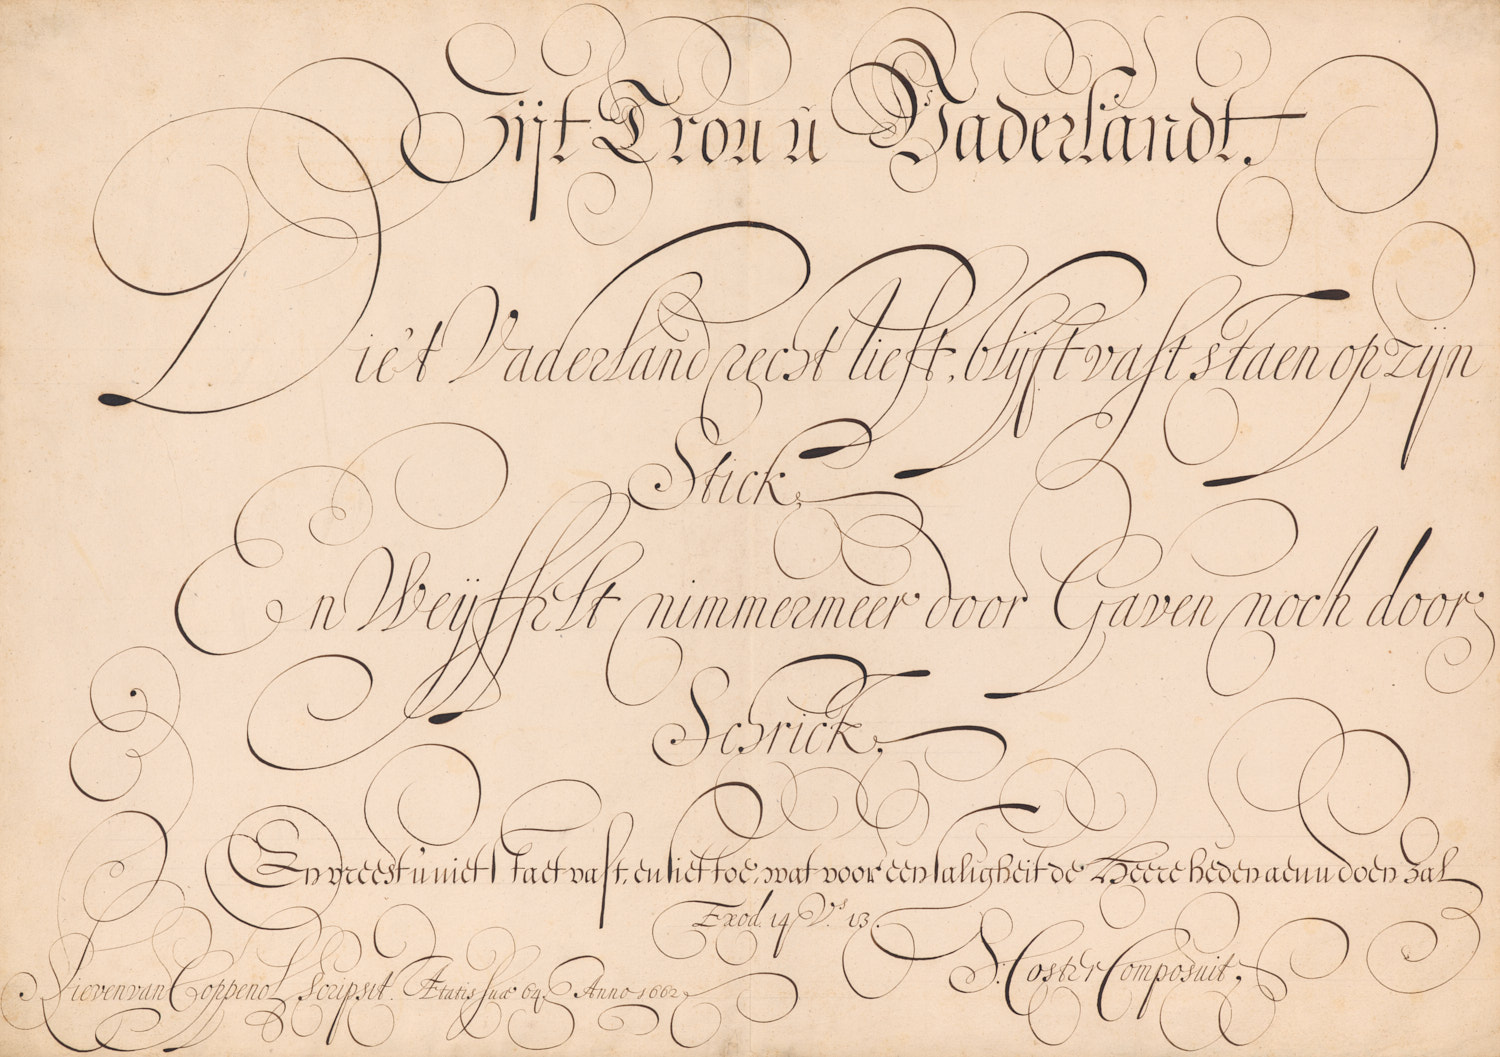 Sijt Trou u Vaderlandt.
Die't Vaderland recht lieft, blijft vast staen op zijn
Stick,
En Weyffelt nimmermeer door Gaven noch door
Schrick,
En vreest u niet staet vast, en siet toe, wat voor een saligheit de Heere heden aen u doen zal
Exod. 14 Vs. 13.
Lieven van Coppenol scripsit. Ætatis suæ 64, Anno 1662,
S: Coster Composuit,